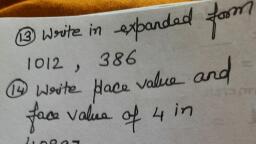 ⑬ Write in expanded form
1012 , 386
⑭ Write place value and
face value of 4 in